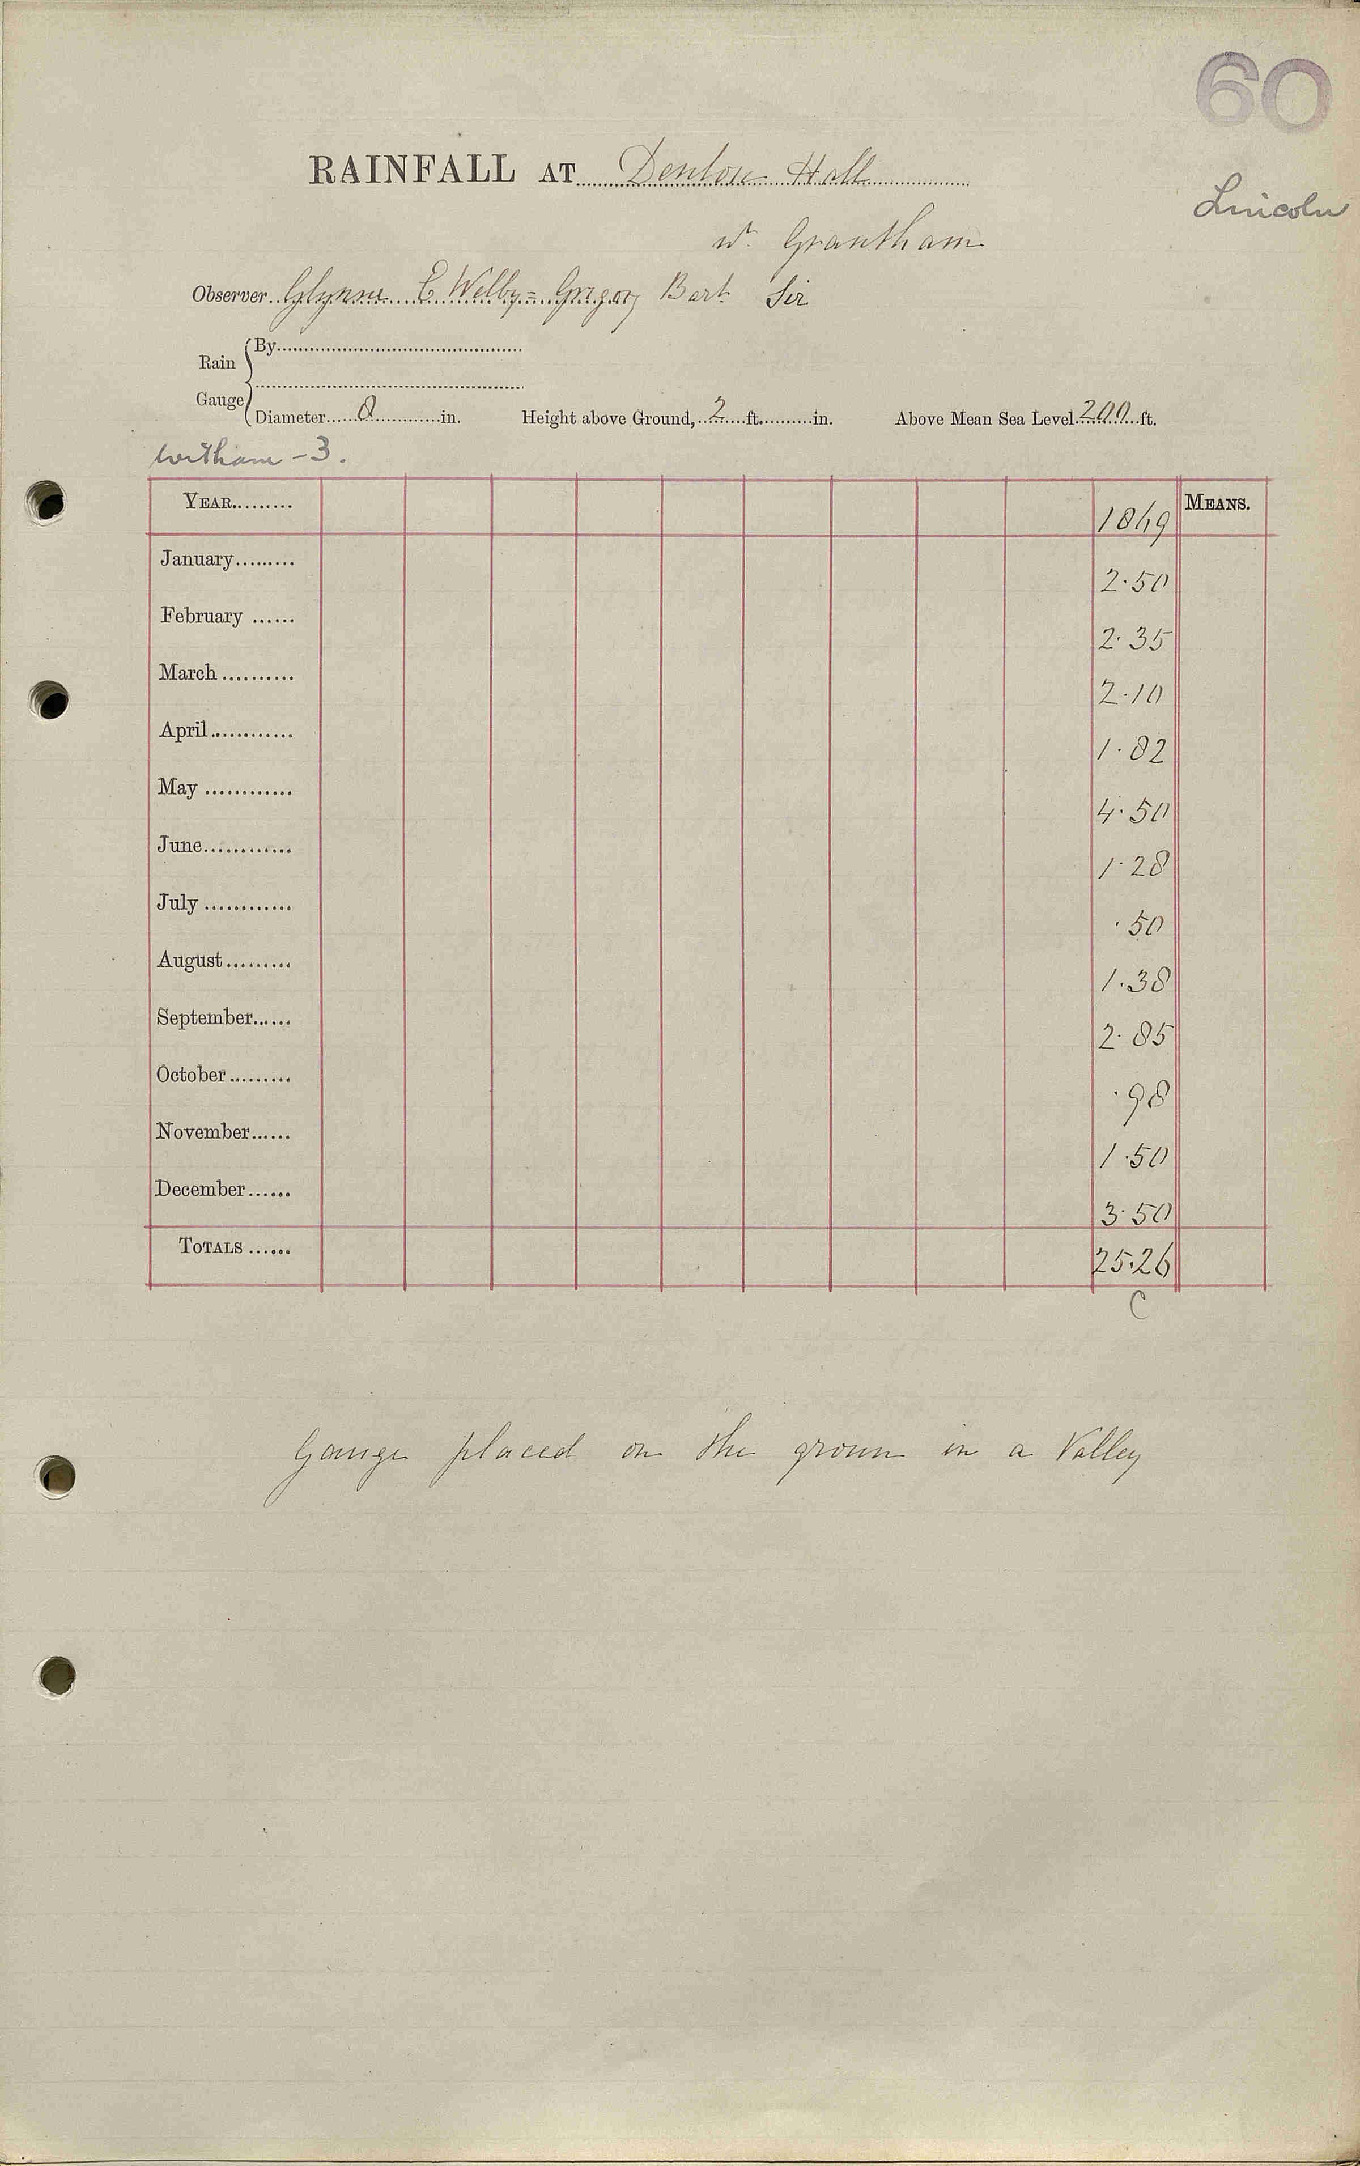 60
RAINFALL AT Denton Hall
Lincoln
nr. Grantham
Observer Glynne E Welby-Gregory Bart Sir
Rain Gauge
By
Diameter 8 in. Height above Ground, 2 ft. in. Above Mean Sea Level 200 ft.
Witham - 3.
YEAR 1869 MEANS.
January 2.50
February 2.35
March 2.10
April 1.82
May 4.50
June 1.28
July .50
August 1.38
September 2.85
October .98
November 1.50
December 3.50
TOTALS 25.26
C
Gauge placed on the groun in a Valley